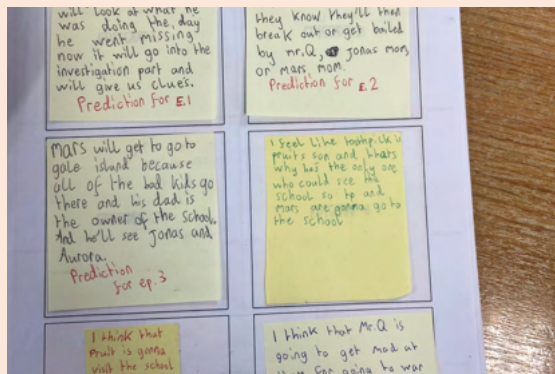 will look at what he
was doing the day
he went missing
now it will go into the
investigation part and
will give us clues.
Prediction for E.1
they know they'll then
break out or get bailed
by mr.Q, Jonas mom,
or Mars mom.
Prediction for E.2
Mars will get to go to
gale island because
all of the bad kids go
there and his dad is
the owner of the school.
And he'll see Jonas and
Aurora.
Prediction
for ep.3
I feel like toothpick is
pruits son and thats
why he's the only one
who could see the
school so tp and
Mars are gonna go to
the school
I think that
Pruit is gonna
visit the school
I think that Mr.Q is
going to get mad at
them for going to war